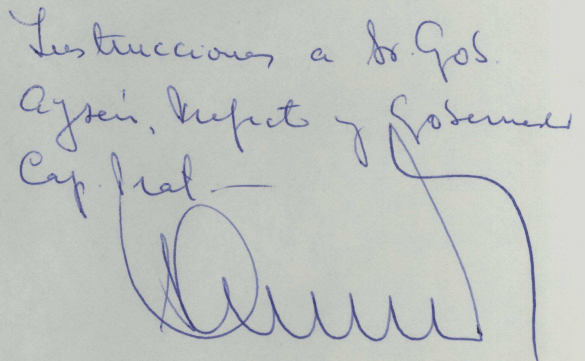 Instrucciones a Sr. Gob.
Aysén, Prefecto y Gobernador
Cap. Prat —